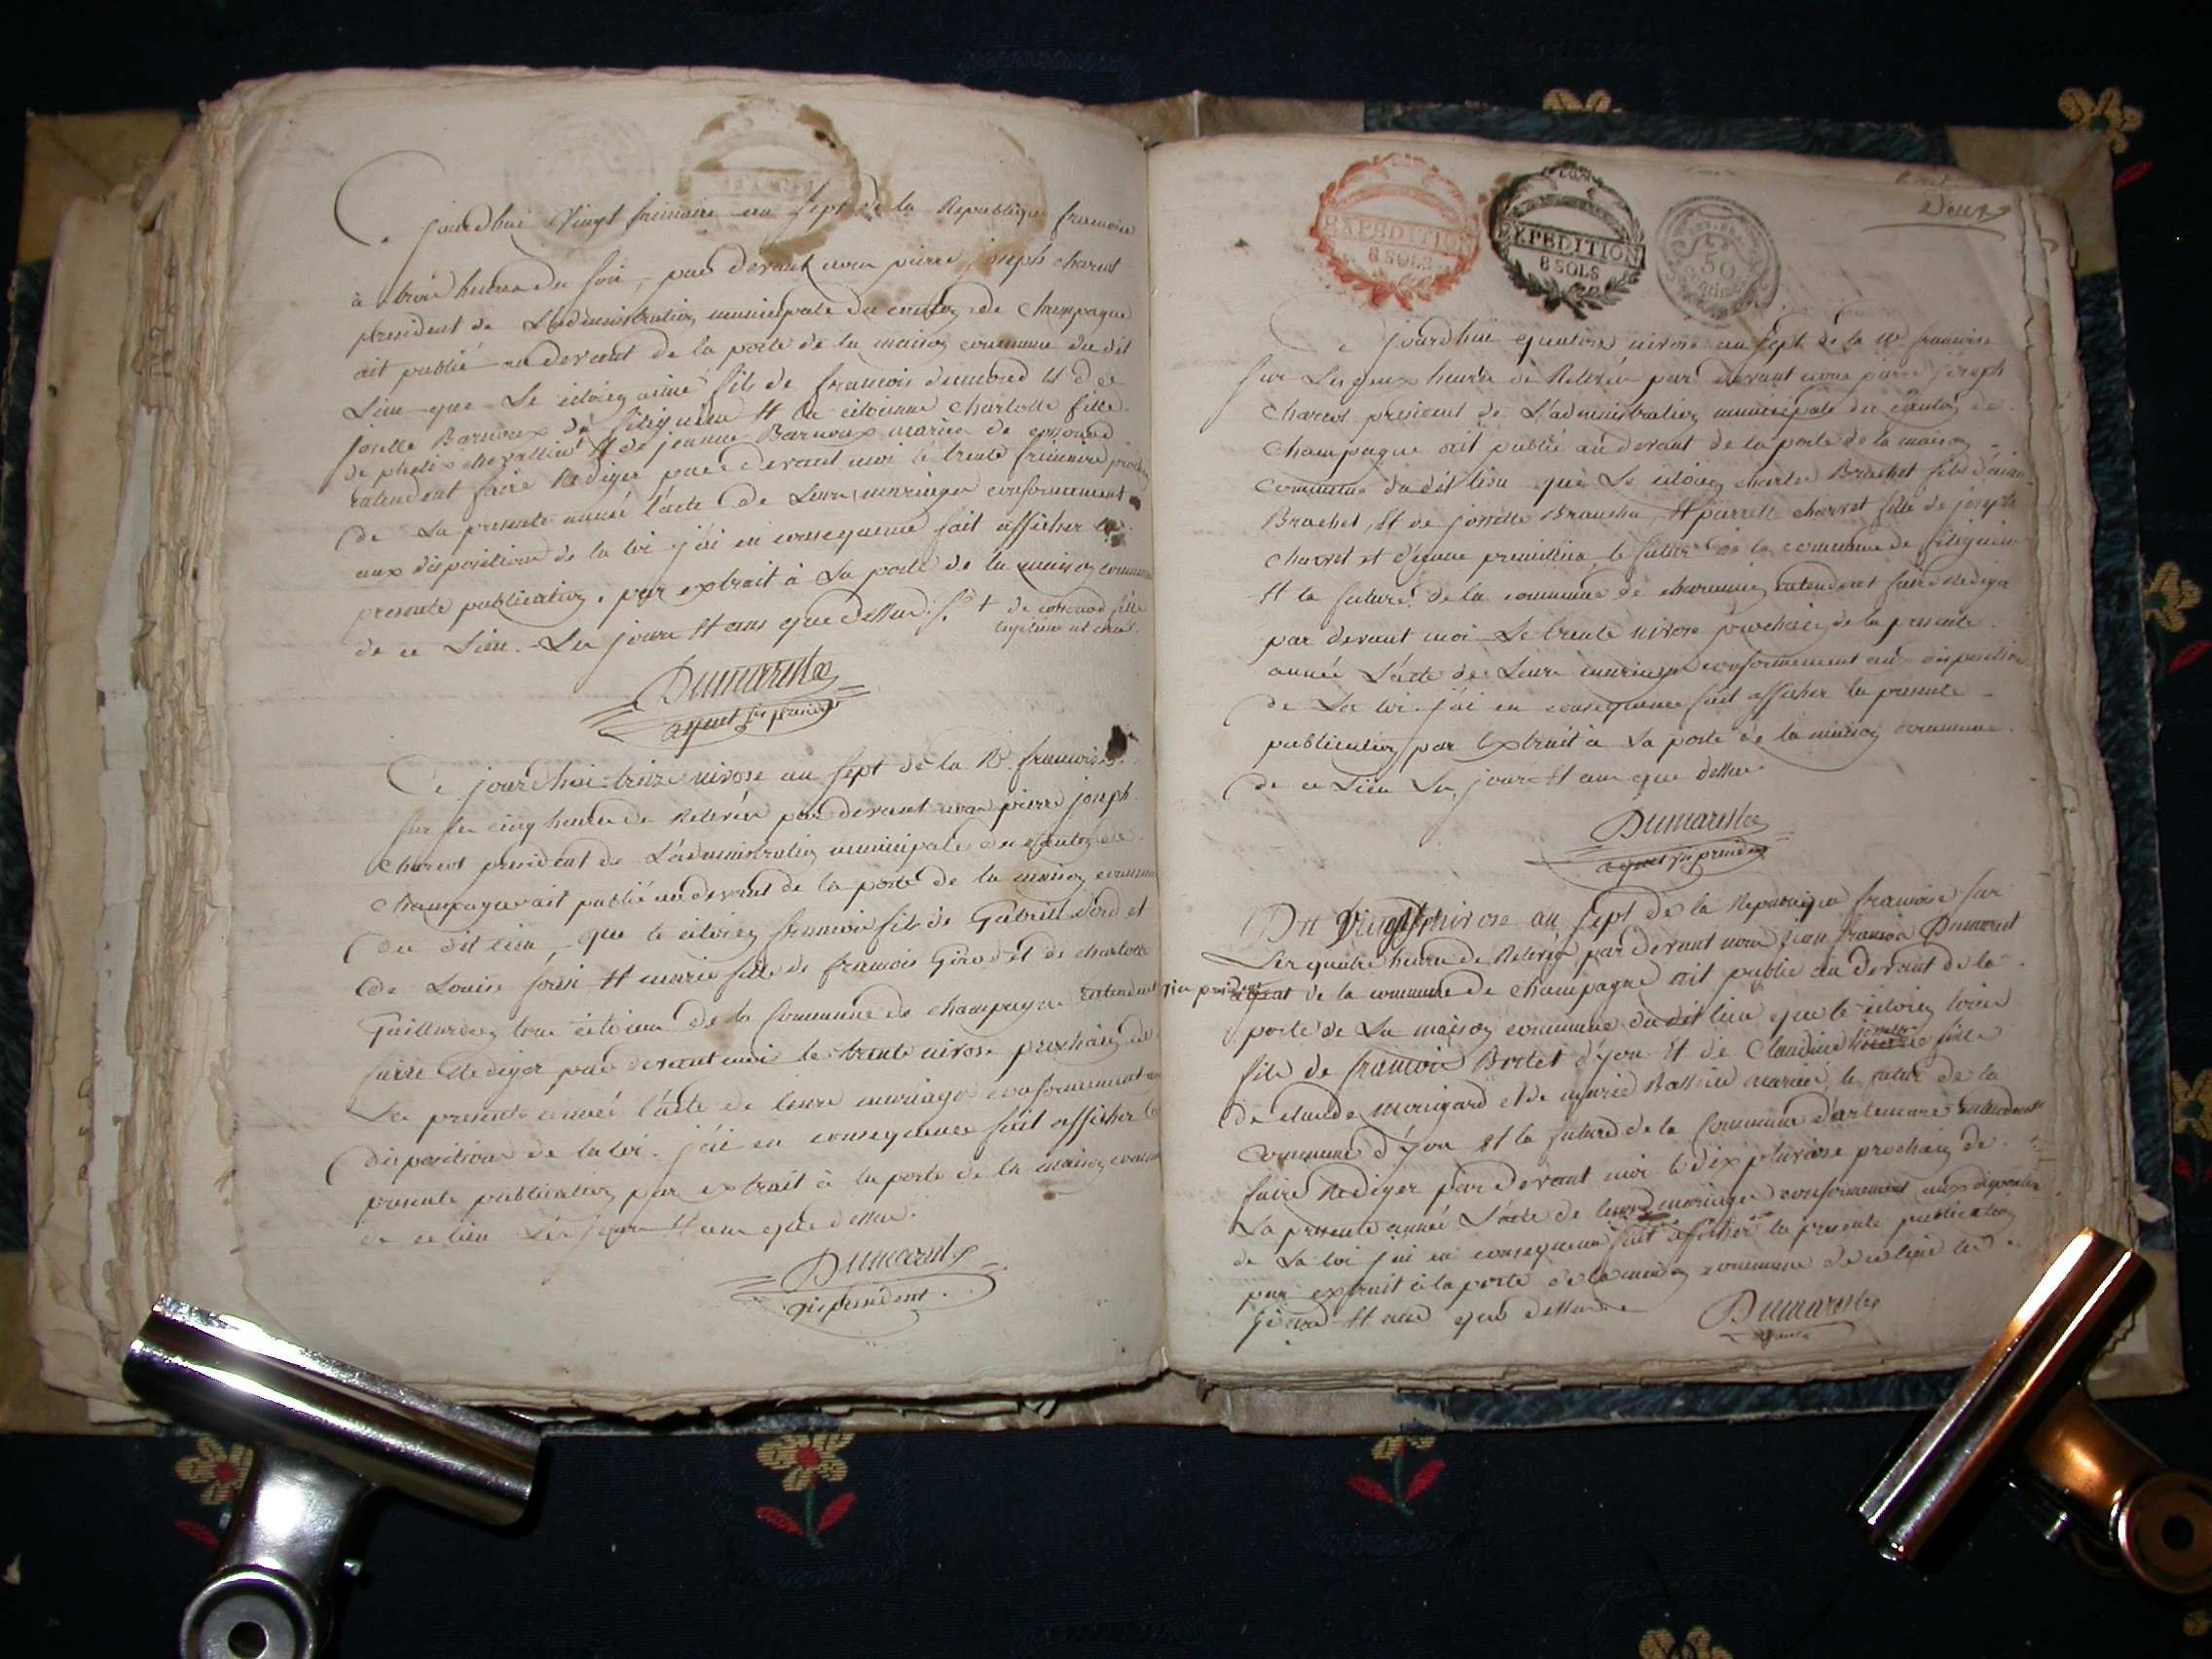 jourdhui Vingt frimaire an sept de la Republique francoise
à trois heures du soir, par devant nous pierre joseph charcot
president de L'administration municipale du canton de Champagne
ait publié au devant de la porte de la maison commune du dit
Lieu que Le citoien aimé fils de francois dumond et de
josette Barnoux de fitignieu et la citoienne charlotte fille
de chevallier et de jeanne Barnoux mariés de
entendent faire Rediger par devant moi le trente frimaire prochain
de La presente année l'acte de Leurs mariages conformement
aux dispositions de la loi j'ai en consequence fait afficher la
presente publication, par extrait à La porte de la maison commune
de ce Lieu. Les jours et ans que dessus
+ de fille
Dumarest
agent president
Ce jourdhui treize nivose an sept de la R. francoise
sur les cinq heures de Relevée par devant nous pierre joseph
Charcot president de L'administration municipale du canton de
champagne ait publié au devant de la porte de la maison commune
du dit lieu, que le citoien francois fils de Gabriel et
de Louise et marie fille de francois Girod et de charlotte
tous citoiens de la Commune de champagne entendent
faire Rediger par devant moi le trente nivose prochain de
La presente année l'acte de leurs mariages conformement aux
dispositions de la loi. j'ai en consequence fait afficher la
presente publication par extrait à la porte de la maison commune
de ce lieu Les jours et ans que dessus.
Dumarest
president
EXPEDITION
8 SOLS
EXPEDITION
8 SOLS
50
Deux
Ce jourdhui quatorze nivose an sept de la R. francoise
sur Les heures de Relevée par devant nous pierre joseph
Charcot president de L'administration municipale du canton de
Champagne ait publié au devant de la porte de la maison
commune du dit lieu que Le citoien charles Brachet fils d'
Brachet, et de josette, et charvet fille de joseph
charvet et le futur de la commune de fitignieu
et la future de la commune de entendent faire Rediger
par devant moi Le trente nivose prochain de la presente
année L'acte de Leurs mariages conformement aux dispositions
de La loi j'ai en consequence fait afficher la presente
publication par Extrait à La porte de la maison commune
de ce Lieu Les jours et ans que dessus
Dumarest
agent president
Du Vingt nivose an sept de la Republique francoise sur
Les quatre heures de Relevée par devant nous jean francois Dumarest
agent de la commune de champagne ait publié au devant de la
porte de La maison commune du dit lieu que le citoien
fils de francois d'yon et de Claudine fille
de claude mongard et de marie mariés, le futur de la
commune d'yon et la future de la Commune d'artemare entendent
faire Rediger par devant moi le dix pluviose prochain de
La presente année L'acte de leurs mariages conformement aux dispositions
de La loi j'ai en consequence fait afficher la presente publication
par extrait à la porte de la maison commune de ce lieu les
jours et ans que dessus
Dumarest
agent